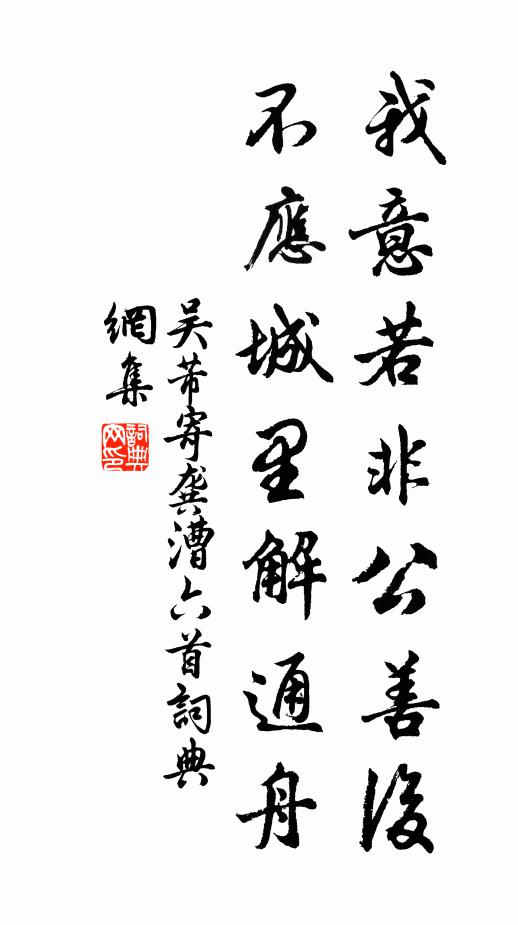 我意若非公善後
不應城里解通舟
吴芾寄龔漕六首詞典
網集
詞典
网印